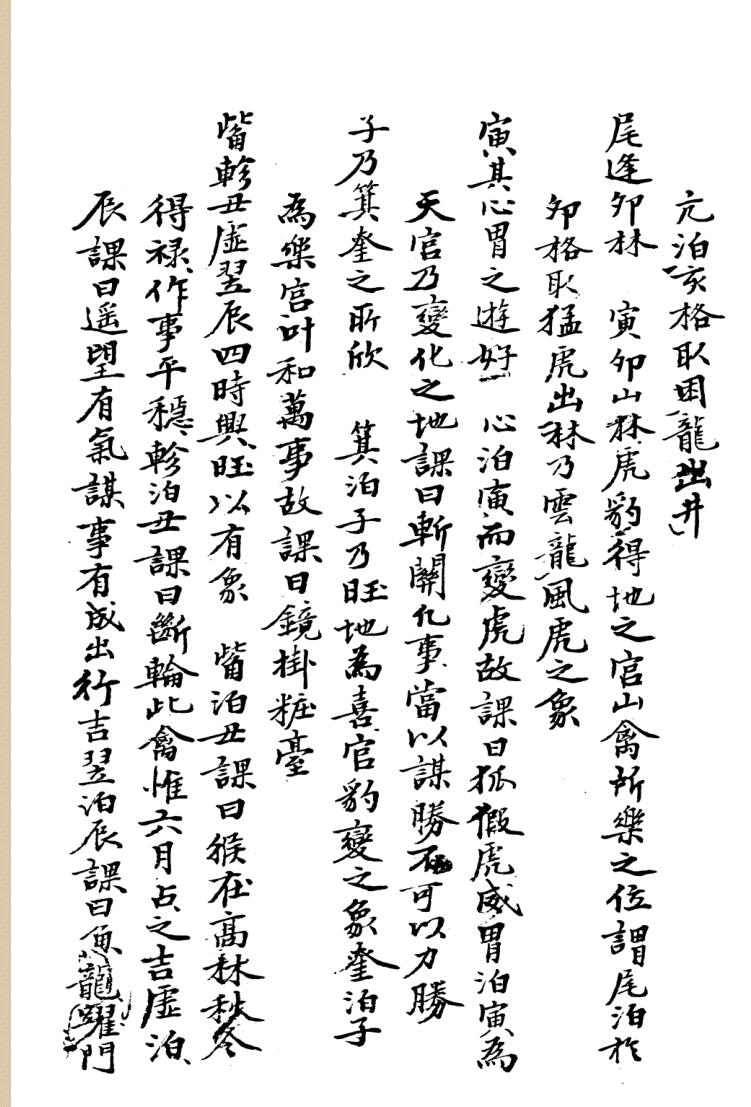 亢泊亥格取困龍出井
尾逢卯林　寅卯山林虎豹得地之官山禽所樂之位謂尾泊於
卯格取猛虎出林乃雲龍風虎之象
寅其心胃之遊好　心泊寅而變虎故課曰狐假虎威胃泊寅為
天官乃變化之地課曰斬關凢事當以謀勝不可以力勝
子乃箕奎之所欣　箕泊子乃旺地為喜官豹變之象奎泊子
為樂官叶和萬事故課曰鏡掛粧臺
觜軫丑虛翌辰四時興旺以有象　觜泊丑課曰猴在高林秋冬
得禄作事平穩軫泊丑課曰斷輪此禽惟六月占之吉虛泊
辰課曰遥望有氣謀事有成出行吉翌泊辰課曰魚龍躍門